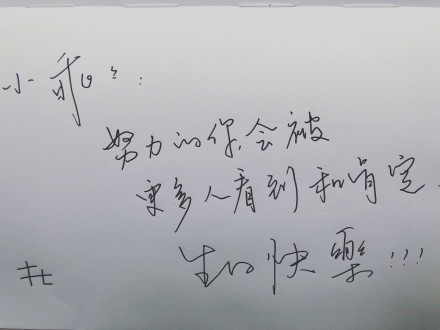 小乖乖：
努力的你，会被
更多人看到和肯定。
生日快樂!!!